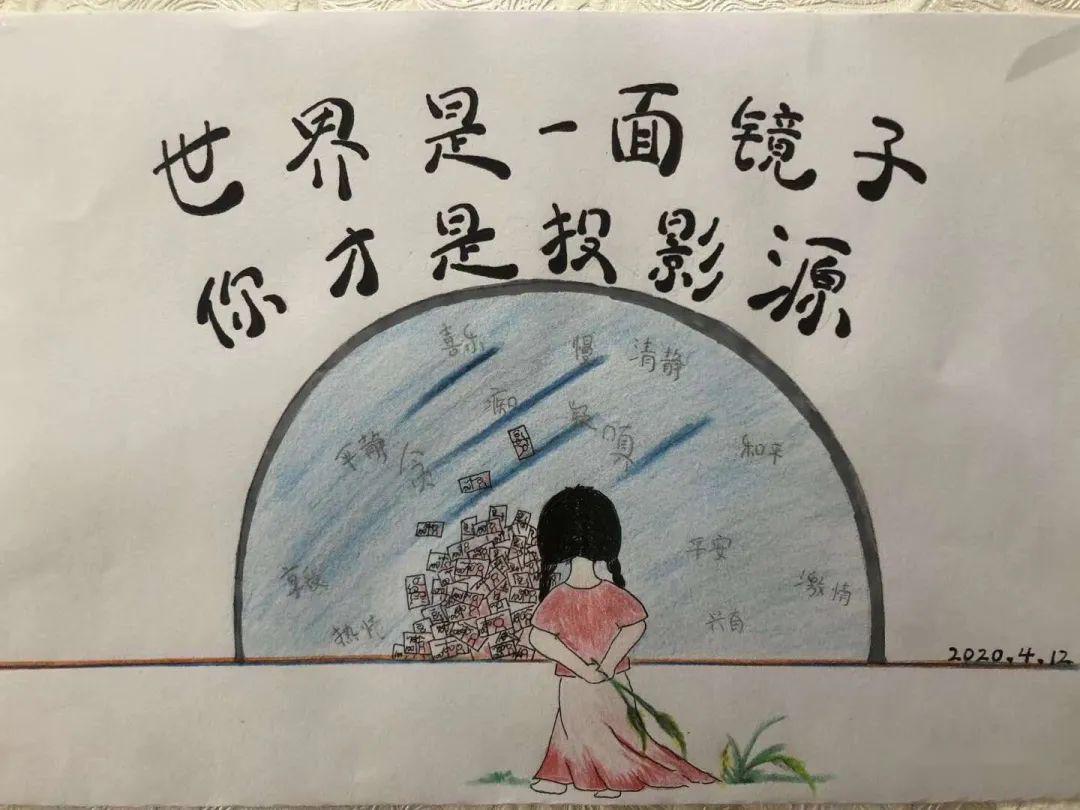 世界是一面镜子
你方是投影源
喜乐
慢
清静
痴
疑
嗔
平静
贪
和平
平安
激情
热情
2020.4.12